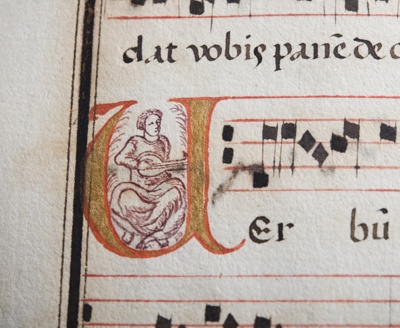 dat vobis panē de c
UEr bū